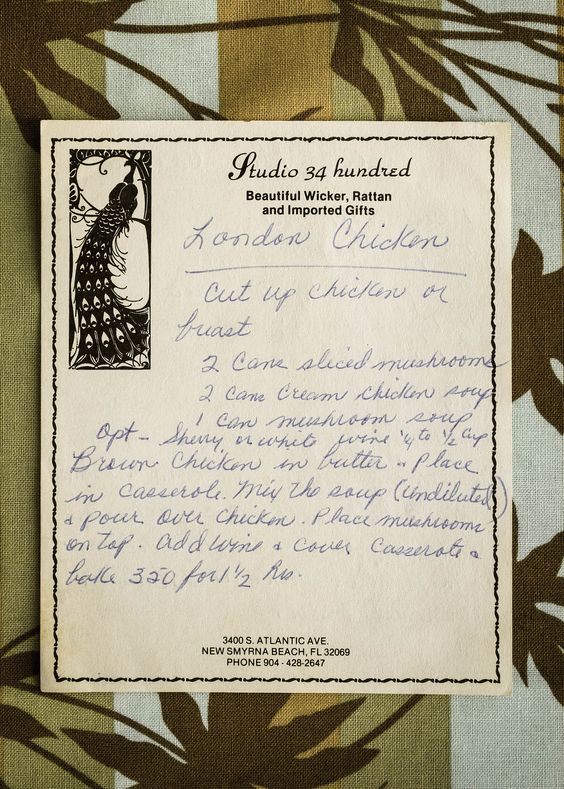 Studio 34 hundred
Beautiful Wicker, Rattan
and Imported Gifts
London Chicken
Cut up chicken or
breast
2 cans sliced mushrooms
2 cans cream chicken soup
1 can mushroom soup
Opt - Sherry or white wine 1/4 to 1/2 cup
Brown chicken in butter & place
in casserole. Mix the soup (undiluted)
& pour over chicken. Place mushrooms
on top. add wine & cover casserole &
bake 350 for 1 1/2 hrs.
3400 S. ATLANTIC AVE.
NEW SMYRNA BEACH, FL 32069
PHONE 904 - 428-2647